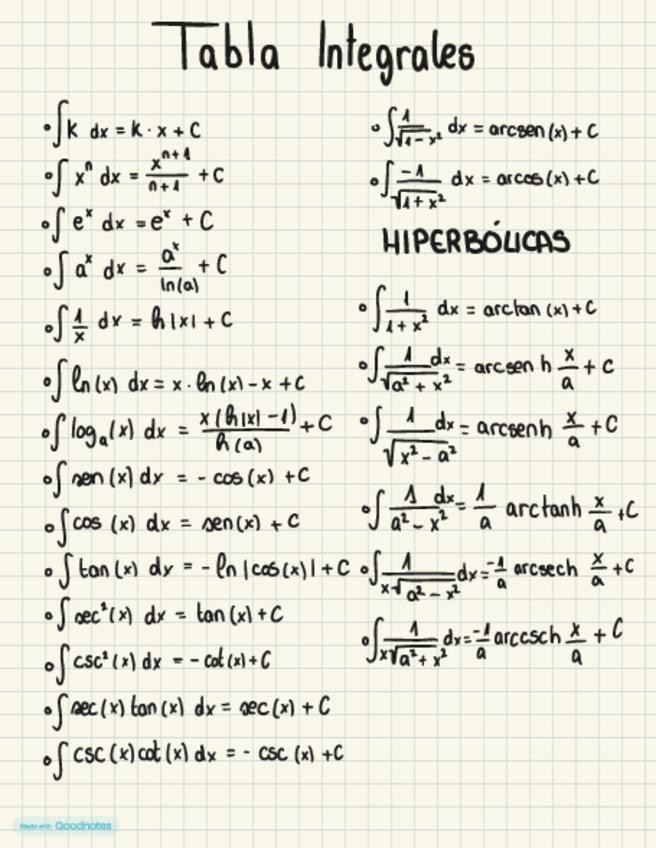 Tabla Integrales
∫k dx = k · x + C
∫ xⁿ dx = xⁿ⁺¹/n+1 + C
∫ eˣ dx = eˣ + C
∫ aˣ dx = aˣ/ln(a) + C
∫ 1/x dx = ln|x| + C
∫ ln(x) dx = x · ln(x) - x + C
∫ logₐ(x) dx = x(ln|x| - 1)/ln(a) + C
∫ sen(x) dx = - cos(x) + C
∫ cos(x) dx = sen(x) + C
∫ tan(x) dx = - ln|cos(x)| + C
∫ sec²(x) dx = tan(x) + C
∫ csc²(x) dx = - cot(x) + C
∫ sec(x) tan(x) dx = sec(x) + C
∫ csc(x) cot(x) dx = - csc(x) + C
∫ 1/√(1 - x²) dx = arcsen(x) + C
∫ -1/√(1 + x²) dx = arccos(x) + C
HIPERBÓLICAS
∫ 1/(1 + x²) dx = arctan(x) + C
∫ 1/√(a² + x²) dx = arcsen h x/a + C
∫ 1/√(x² - a²) dx = arcsenh x/a + C
∫ 1/(a² - x²) dx = 1/a arctanh x/a + C
∫ 1/(x√(a² - x²)) dx = -1/a arcsech x/a + C
∫ 1/(x√(a² + x²)) dx = -1/a arccsch x/a + C
Made with Goodnotes